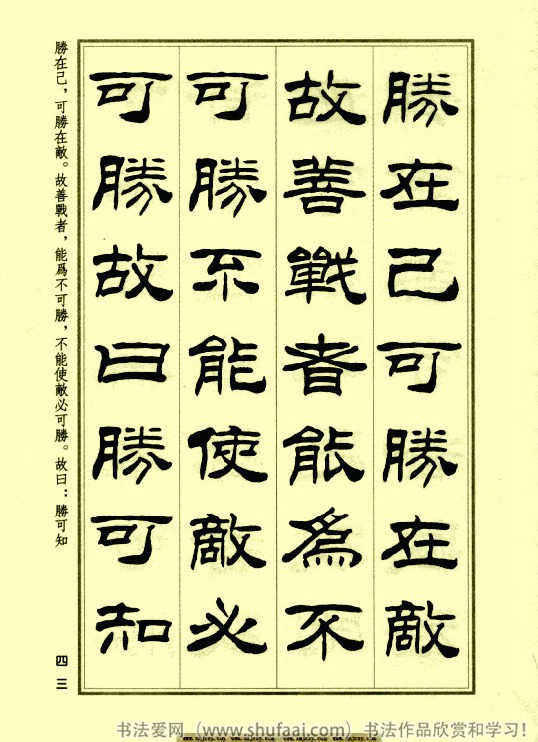 勝在己可勝在敵
故善戰者能爲不
可勝不能使敵必
可勝故曰勝可知
勝在己，可勝在敵。故善戰者，能爲不可勝，不能使敵必可勝。故曰：勝可知
四三
书法爱网（www.shufaai.com）书法作品欣赏和学习！